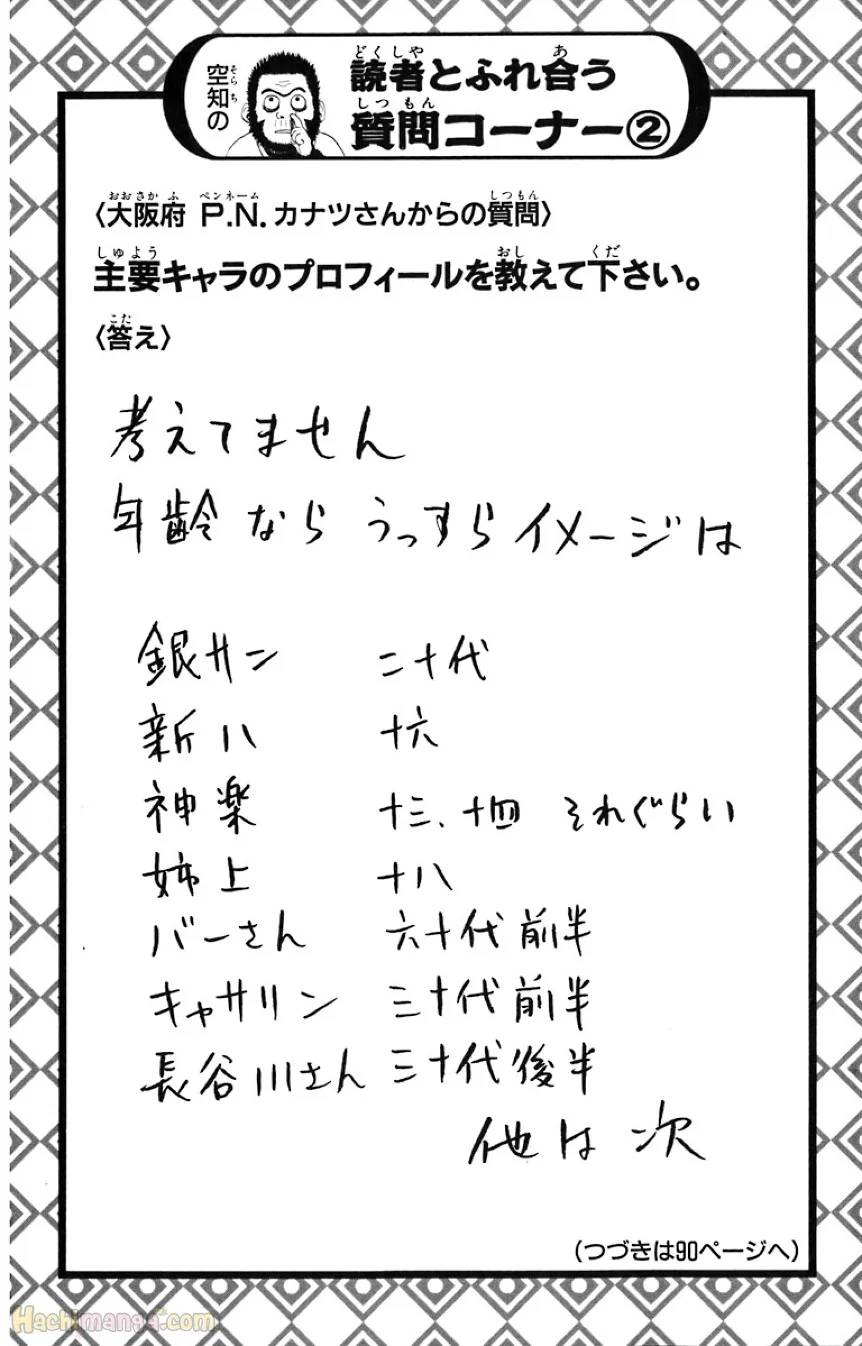 空知の
読者とふれ合う
質問コーナー②
〈大阪府 P.N.カナツさんからの質問〉
主要キャラのプロフィールを教えて下さい。
〈答え〉
考えてません
年齢なら うっすらイメージは
銀サン 二十代
新八 十六
神楽 十三、十四 それぐらい
姉上 十八
バーさん 六十代前半
キャサリン 三十代前半
長谷川さん 三十代後半
他は次
(つづきは90ページへ)
Hachimanga.com